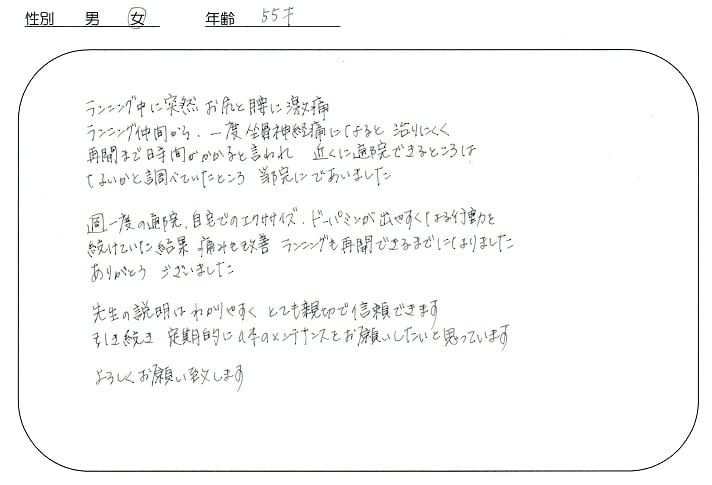 性別 男 女 年齢 55才
ランニング中に突然 お尻と腰に激痛
ランニング仲間から、一度坐骨神経痛になると 治りにくく
再開まで時間がかかると言われ 近くに通院できるところは
ないかと調べていたところ 当院にであいました
週一度の通院、自宅でのエクササイズ、ドーパミンが出やすくなる行動を
続けていた結果 痛みも改善 ランニングも再開できるまでになりました
ありがとう ございました
先生の説明は わかりやすく とても親切で信頼できます
引き続き 定期的に 体のメンテナンスをお願いしたいと思っています
よろしくお願い致します